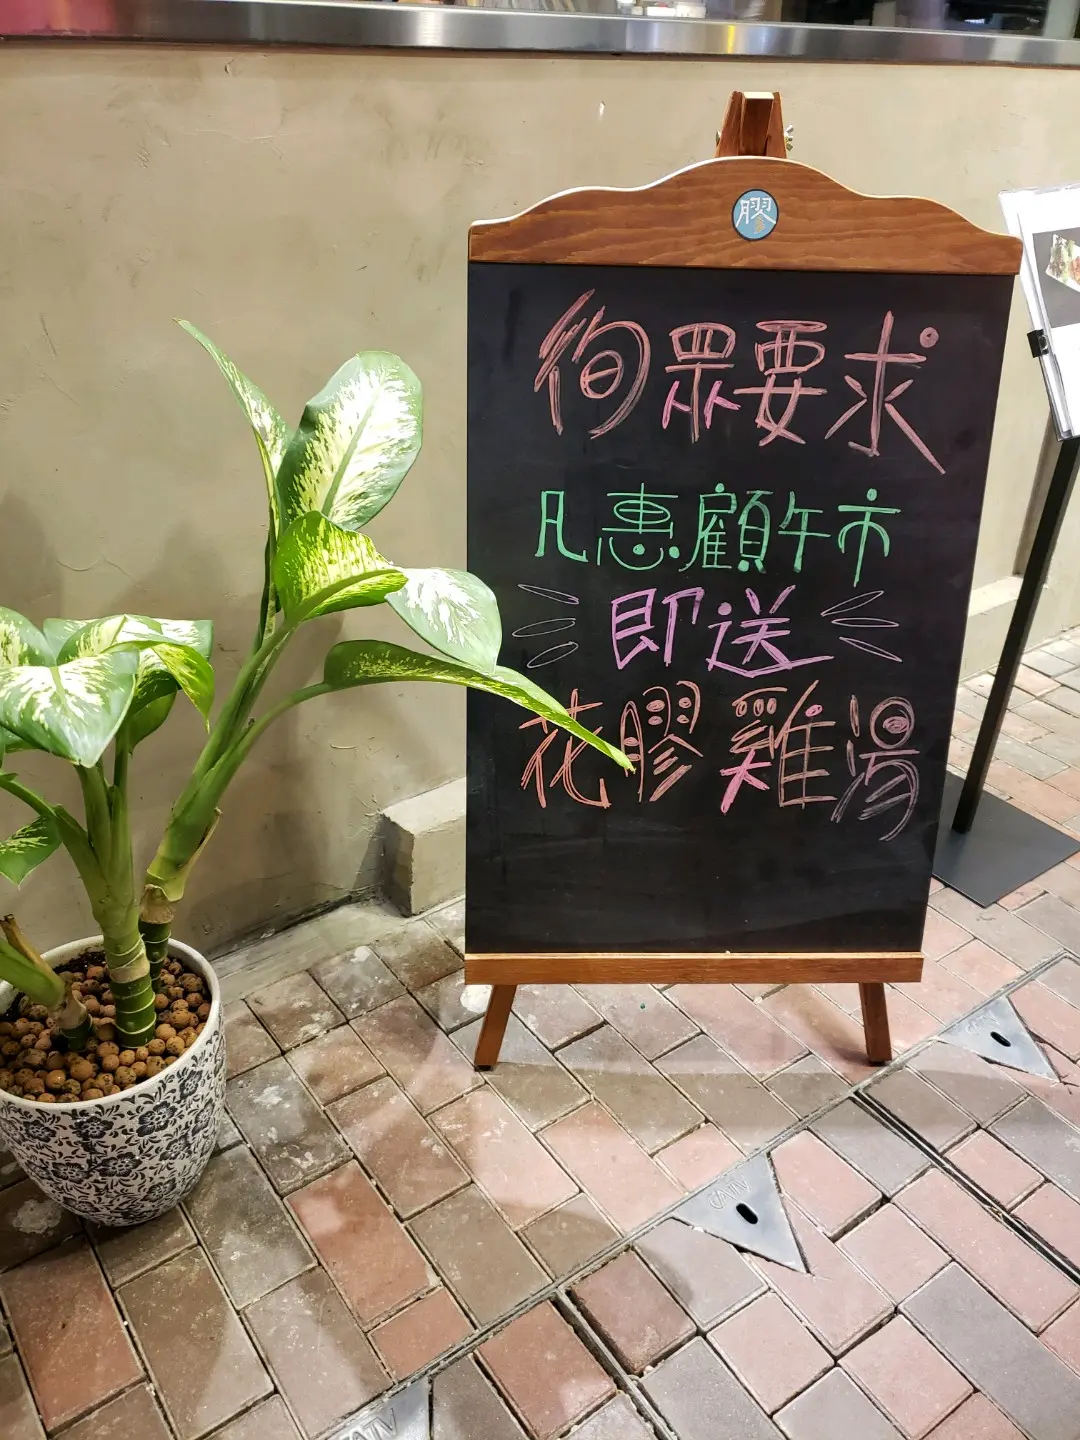 膠
徇眾要求
凡惠顧午市
即送
花膠雞湯
CATV
CATV